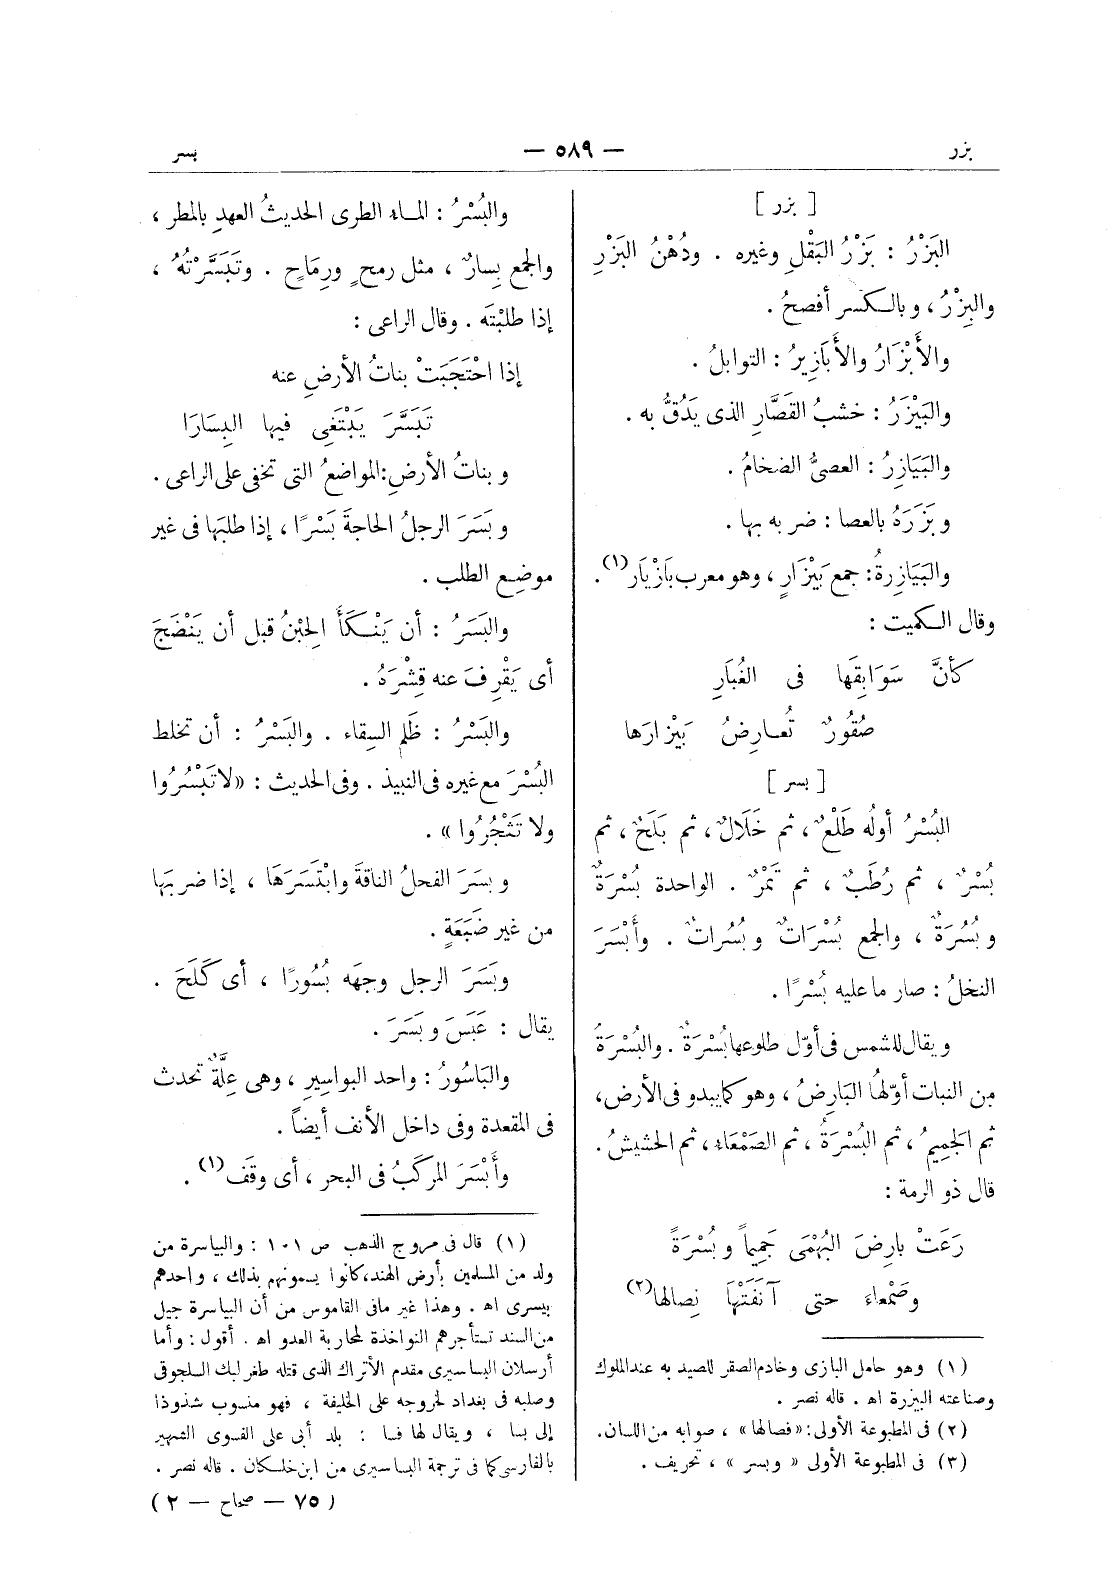 بزر
— ٥٨٩ —
بسر
[ بزر ]
البَزْرُ : بَزْرُ البَقْلِ وغيره . ودُهْنُ البَزْرِ
والبِزْرُ ، وبالكسر أفصحُ .
والأَبْزَارُ والأَبَازِيرُ : التوابلُ .
والبَيْزَرُ : خشبُ القَصَّارِ الذى يَدُقُّ به .
والبَيَازِرُ : العصىُّ الضخامُ .
وبَزَرَهُ بالعصا : ضربه بها .
والبَيَازِرةُ : جمع بَيْزَارٍ ، وهو معرب بَازْيَار(١) .
وقال الكميت :
كأنَّ سَوَابِقَها فى الغُبَارِ
صُقُورٌ تُعارِضُ بَيْزارَها
[ بسر ]
البُسْرُ أوله طَلْعٌ ، ثم خَلَالٌ ، ثم بَلَحٌ ، ثم
بُسْرٌ ، ثم رُطَبٌ ، ثم تَمْرٌ . الواحدة بُسْرَةٌ
وبُسُرَةٌ ، والجمع بُسْرَاتٌ وبُسُراتٌ . وأَبْسَرَ
النخلُ : صار ما عليه بُسْرًا .
ويقال للشمس فى أوّل طلوعها بُسْرَةٌ . والبُسْرَةُ
من النبات أوّلها البَارِضُ ، وهو كما يبدو فى الأرض،
ثم الجَمِيمُ ، ثم البُسْرَةُ ، ثم الصَمْعَاء ، ثم الحشيشُ .
قال ذو الرمة :
رَعَتْ بارِضَ البُهْمَى جَمِيماً وبُسْرَةً
وصَمْعاءَ حتى آنَفَتْهَا نِصالها(٢)
(١) وهو حامل البازى وخادم الصقر للصيد به عند الملوك
وصناعته البيزرة اه . قاله نصر .
(٢) فى المطبوعة الأولى : «فصالها» ، صوابه من اللسان.
(٣) فى المطبوعة الأولى « وبسر » ، تحريف .
والبُسْرُ : الماء الطرى الحديثُ العهدِ بالمطر ،
والجمع بِسارٌ ، مثل رمحٍ ورِمَاحٍ . وتَبَسَّرْتُهُ ،
إذا طلبْتَه . وقال الراعى :
إذا احْتَجَبَتْ بناتُ الأرضِ عنه
تَبَسَّرَ يَبْتَغِى فيها البِسَارَا
وبناتُ الأرضِ : المواضعُ التى تخفى على الراعى .
وبَسَرَ الرجلُ الحاجةَ بَسْرًا ، إذا طلبَها فى غير
موضِع الطلب .
والبَسَرُ : أن يَنْكَأَ الحِبْنُ قبل أن يَنْضَجَ
أى يَقْرِفَ عنه قِشْرَهُ .
والبَسْرُ : ظَلم السِقاء . والبَسْرُ : أن تخلط
البُسْرَ مع غيره فى النبيذ . وفى الحديث : « لا تَبْسُرُوا
ولا تَثْجُرُوا » .
وبسَرَ الفحلُ الناقةَ وابْتَسَرَهَا ، إذا ضربَها
من غير ضَبَعَةٍ .
وبَسَرَ الرجل وجهَه بُسُورًا ، أى كَلَحَ .
يقال : عَبَسَ وبَسَرَ .
والبَاسُورُ : واحد البواسِيرِ ، وهى عِلَّةٌ تحدث
فى المقعدة وفى داخل الأنف أيضاً .
وأَبْسَرَ المركَبُ فى البحر ، أى وقَفَ(١) .
(١) قال فى مروج الذهب ص ١٠١ : والبياسرة من
ولد من المسلمين بأرض الهند، كانوا يسمونهم بذلك ، واحدهم
بيسرى اه . وهذا غير مافى القاموس من أن البياسرة جيل
من السند تستأجرهم النواخذة لمحاربة العدو اه . أقول : وأما
أرسلان البساسيرى مقدم الأتراك الذى قتله طغرلبك السلجوقى
وصلبه فى بغداد لخروجه على الخليفة ، فهو منسوب شذوذا
إلى بسا ، ويقال لها فسا : بلد أبى على الفسوى الشهير
بالفارسى كما فى ترجمة البساسيرى من ابن خلكان . قاله نصر .
( ٧٥ — صحاح — ٢ )